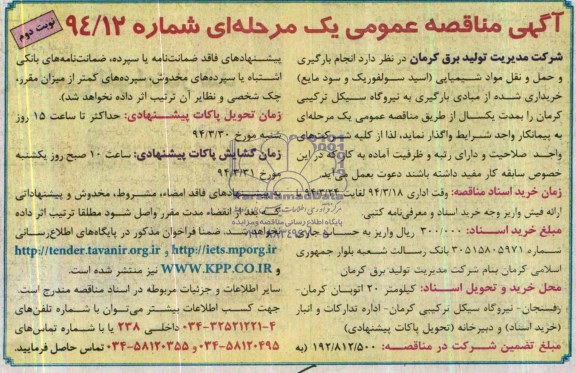 آگهی مناقصه عمومی یک مرحله‌ای شماره ۹۴/۱۲
نوبت دوم
شرکت مدیریت تولید برق کرمان در نظر دارد انجام بارگیری
و حمل و نقل مواد شیمیایی (اسید سولفوریک و سود مایع)
خریداری شده از مبادی بارگیری به نیروگاه سیکل ترکیبی
کرمان را بمدت یکسال از طریق مناقصه عمومی یک مرحله‌ای
به پیمانکار واجد شرایط واگذار نماید، لذا از کلیه شرکت‌های
واجد صلاحیت و دارای رتبه و ظرفیت آماده به کار که در این
خصوص سابقه کار مفید داشته باشند دعوت بعمل می‌آید
زمان خرید اسناد مناقصه: وقت اداری ۹۴/۳/۱۸ لغایت ۹۴/۳/۲۴ با
ارائه فیش واریز وجه خرید اسناد و معرفی‌نامه کتبی
مبلغ خرید اسناد: ۳۰۰/۰۰۰ ریال واریز به حساب جاری
شماره ۳۰۵۱۵۸۰۵۹۷۱ بانک رسالت شعبه بلوار جمهوری
اسلامی کرمان بنام شرکت مدیریت تولید برق کرمان
محل خرید و تحویل اسناد: کیلومتر ۲۰ اتوبان کرمان-
رفسنجان- نیروگاه سیکل ترکیبی کرمان- اداره تدارکات و انبار
(خرید اسناد) و دبیرخانه (تحویل پاکات پیشنهادی)
مبلغ تضمین شرکت در مناقصه: ۱۹۲/۸۱۲/۵۰۰ (به
پیشنهادهای فاقد ضمانت‌نامه یا سپرده، ضمانت‌نامه‌های بانکی
اشتباه یا سپرده‌های مخدوش، سپرده‌های کمتر از میزان مقرر،
چک شخصی و نظایر آن ترتیب اثر داده نخواهد شد).
زمان تحویل پاکات پیشنهادی: حداکثر تا ساعت ۱۵ روز
شنبه مورخ ۹۴/۳/۳۰
زمان گشایش پاکات پیشنهادی: ساعت ۱۰ صبح روز یکشنبه
مورخ ۹۴/۳/۳۱
پیشنهادهای فاقد امضاء، مشروط، مخدوش و پیشنهاداتی
که بعد از انقضاء مدت مقرر واصل شود مطلقا ترتیب اثر داده
نخواهد شد. ضمنا فراخوان مذکور در پایگاه‌های اطلاع‌رسانی
http://iets.mporg.ir و http://tender.tavanir.org.ir
و WWW.KPP.CO.IR نیز منتشر شده است.
سایر اطلاعات و جزئیات مربوطه در اسناد مناقصه مندرج است.
جهت کسب اطلاعات بیشتر می‌توان با شماره تلفن‌های
۰۳۴-۳۲۵۲۱۲۲۱-۴ داخلی ۲۳۸ یا با شماره تماس‌های
۰۳۴-۵۸۱۲۰۴۹۵ و ۰۳۴-۵۸۱۲۰۳۵۵ تماس حاصل فرمایید.